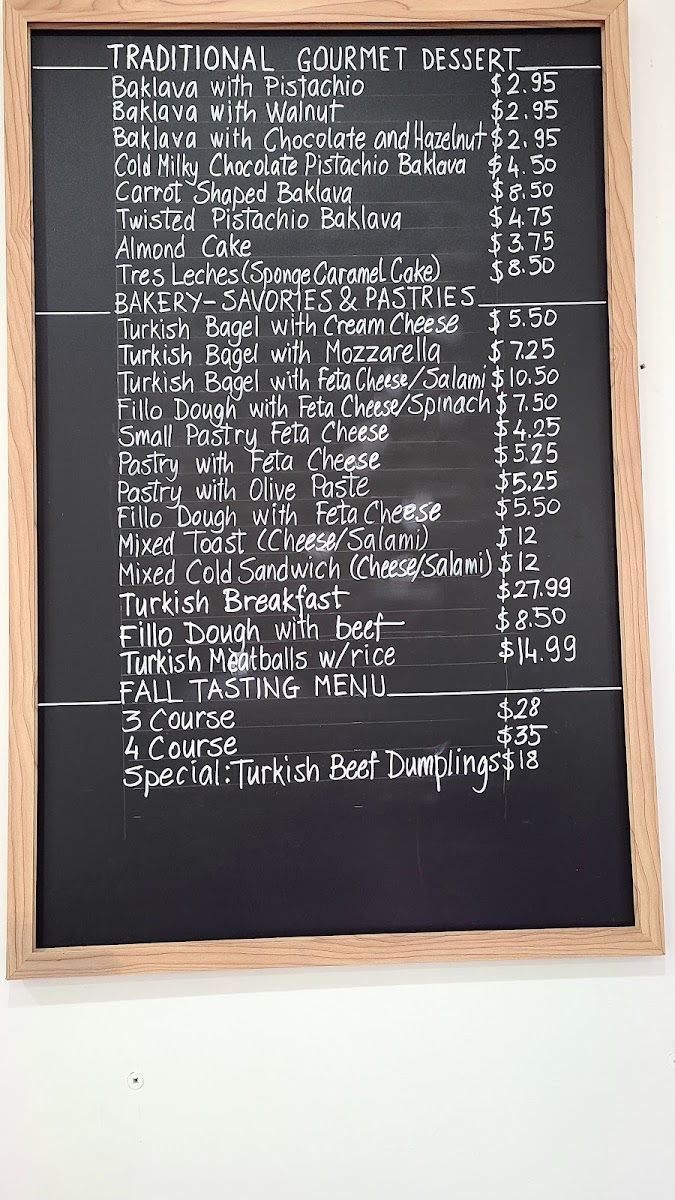 TRADITIONAL GOURMET DESSERT
Baklava with Pistachio $2.95
Baklava with Walnut $2.95
Baklava with Chocolate and Hazelnut $2.95
Cold Milky Chocolate Pistachio Baklava $4.50
Carrot Shaped Baklava $8.50
Twisted Pistachio Baklava $4.75
Almond Cake $3.75
Tres Leches (Sponge Caramel Cake) $8.50
BAKERY-SAVORIES & PASTRIES
Turkish Bagel with Cream Cheese $5.50
Turkish Bagel with Mozzarella $7.25
Turkish Bagel with Feta Cheese/Salami $10.50
Fillo Dough with Feta Cheese/Spinach $7.50
Small Pastry Feta Cheese $4.25
Pastry with Feta Cheese $5.25
Pastry with Olive Paste $5.25
Fillo Dough with Feta Cheese $5.50
Mixed Toast (Cheese/Salami) $12
Mixed Cold Sandwich (Cheese/Salami) $12
Turkish Breakfast $27.99
Fillo Dough with beef $8.50
Turkish Meatballs w/rice $14.99
FALL TASTING MENU
3 Course $28
4 Course $35
Special: Turkish Beef Dumplings $18